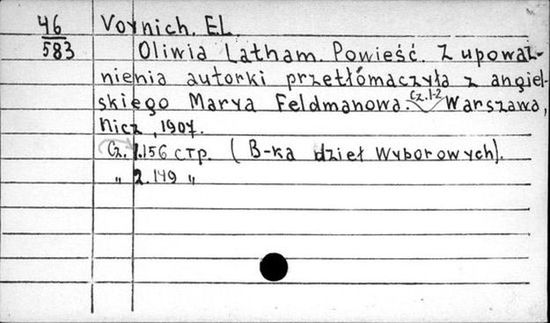 46 Voynich. E.L.
583 Oliwia Latham. Powieść. Z upoważ-
nienia autorki przetłómaczyła z angiel-
skiego Marya Feldmanowa. Cz. 1-2 Warszawa,
Nicz, 1907.
Cz. 1. 156 стр. (B-ka dzieł wyborowych).
" 2. 149 "